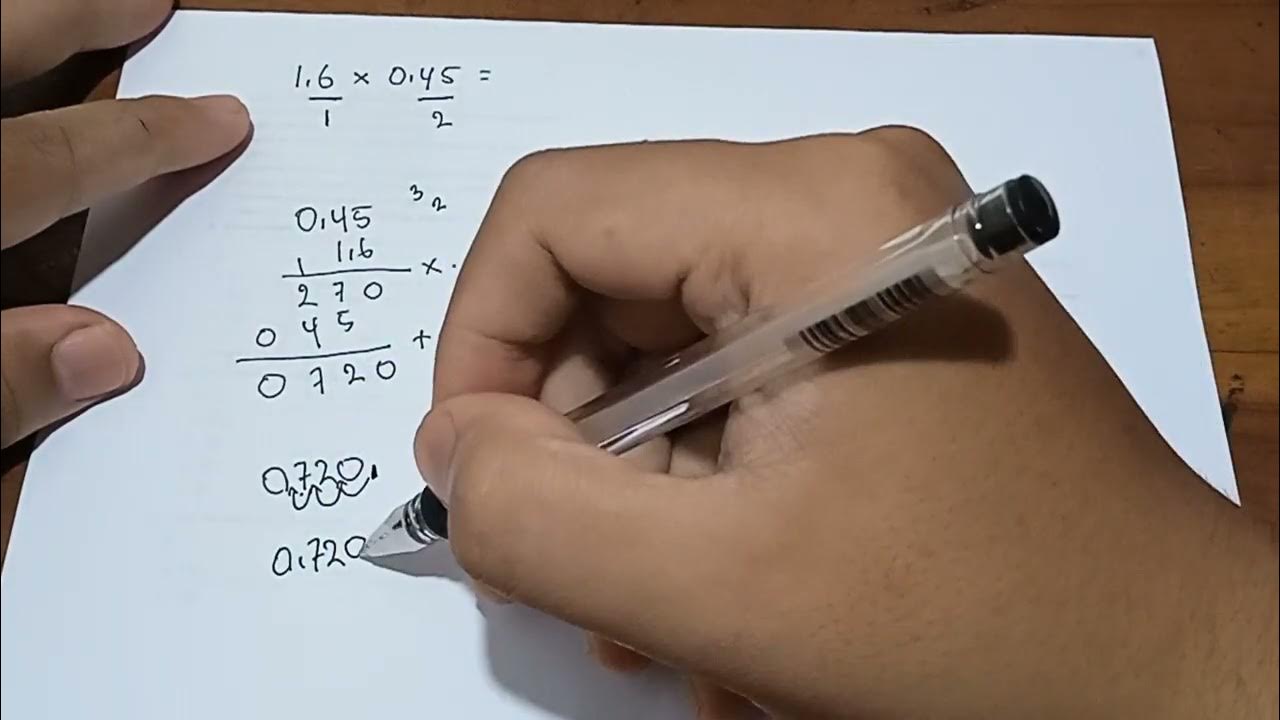 1.6 × 0.45 =
1 2
3 2
0.45
1.6
1 ×
2 7 0
0 4 5 +
0 7 2 0
0720.
0.720